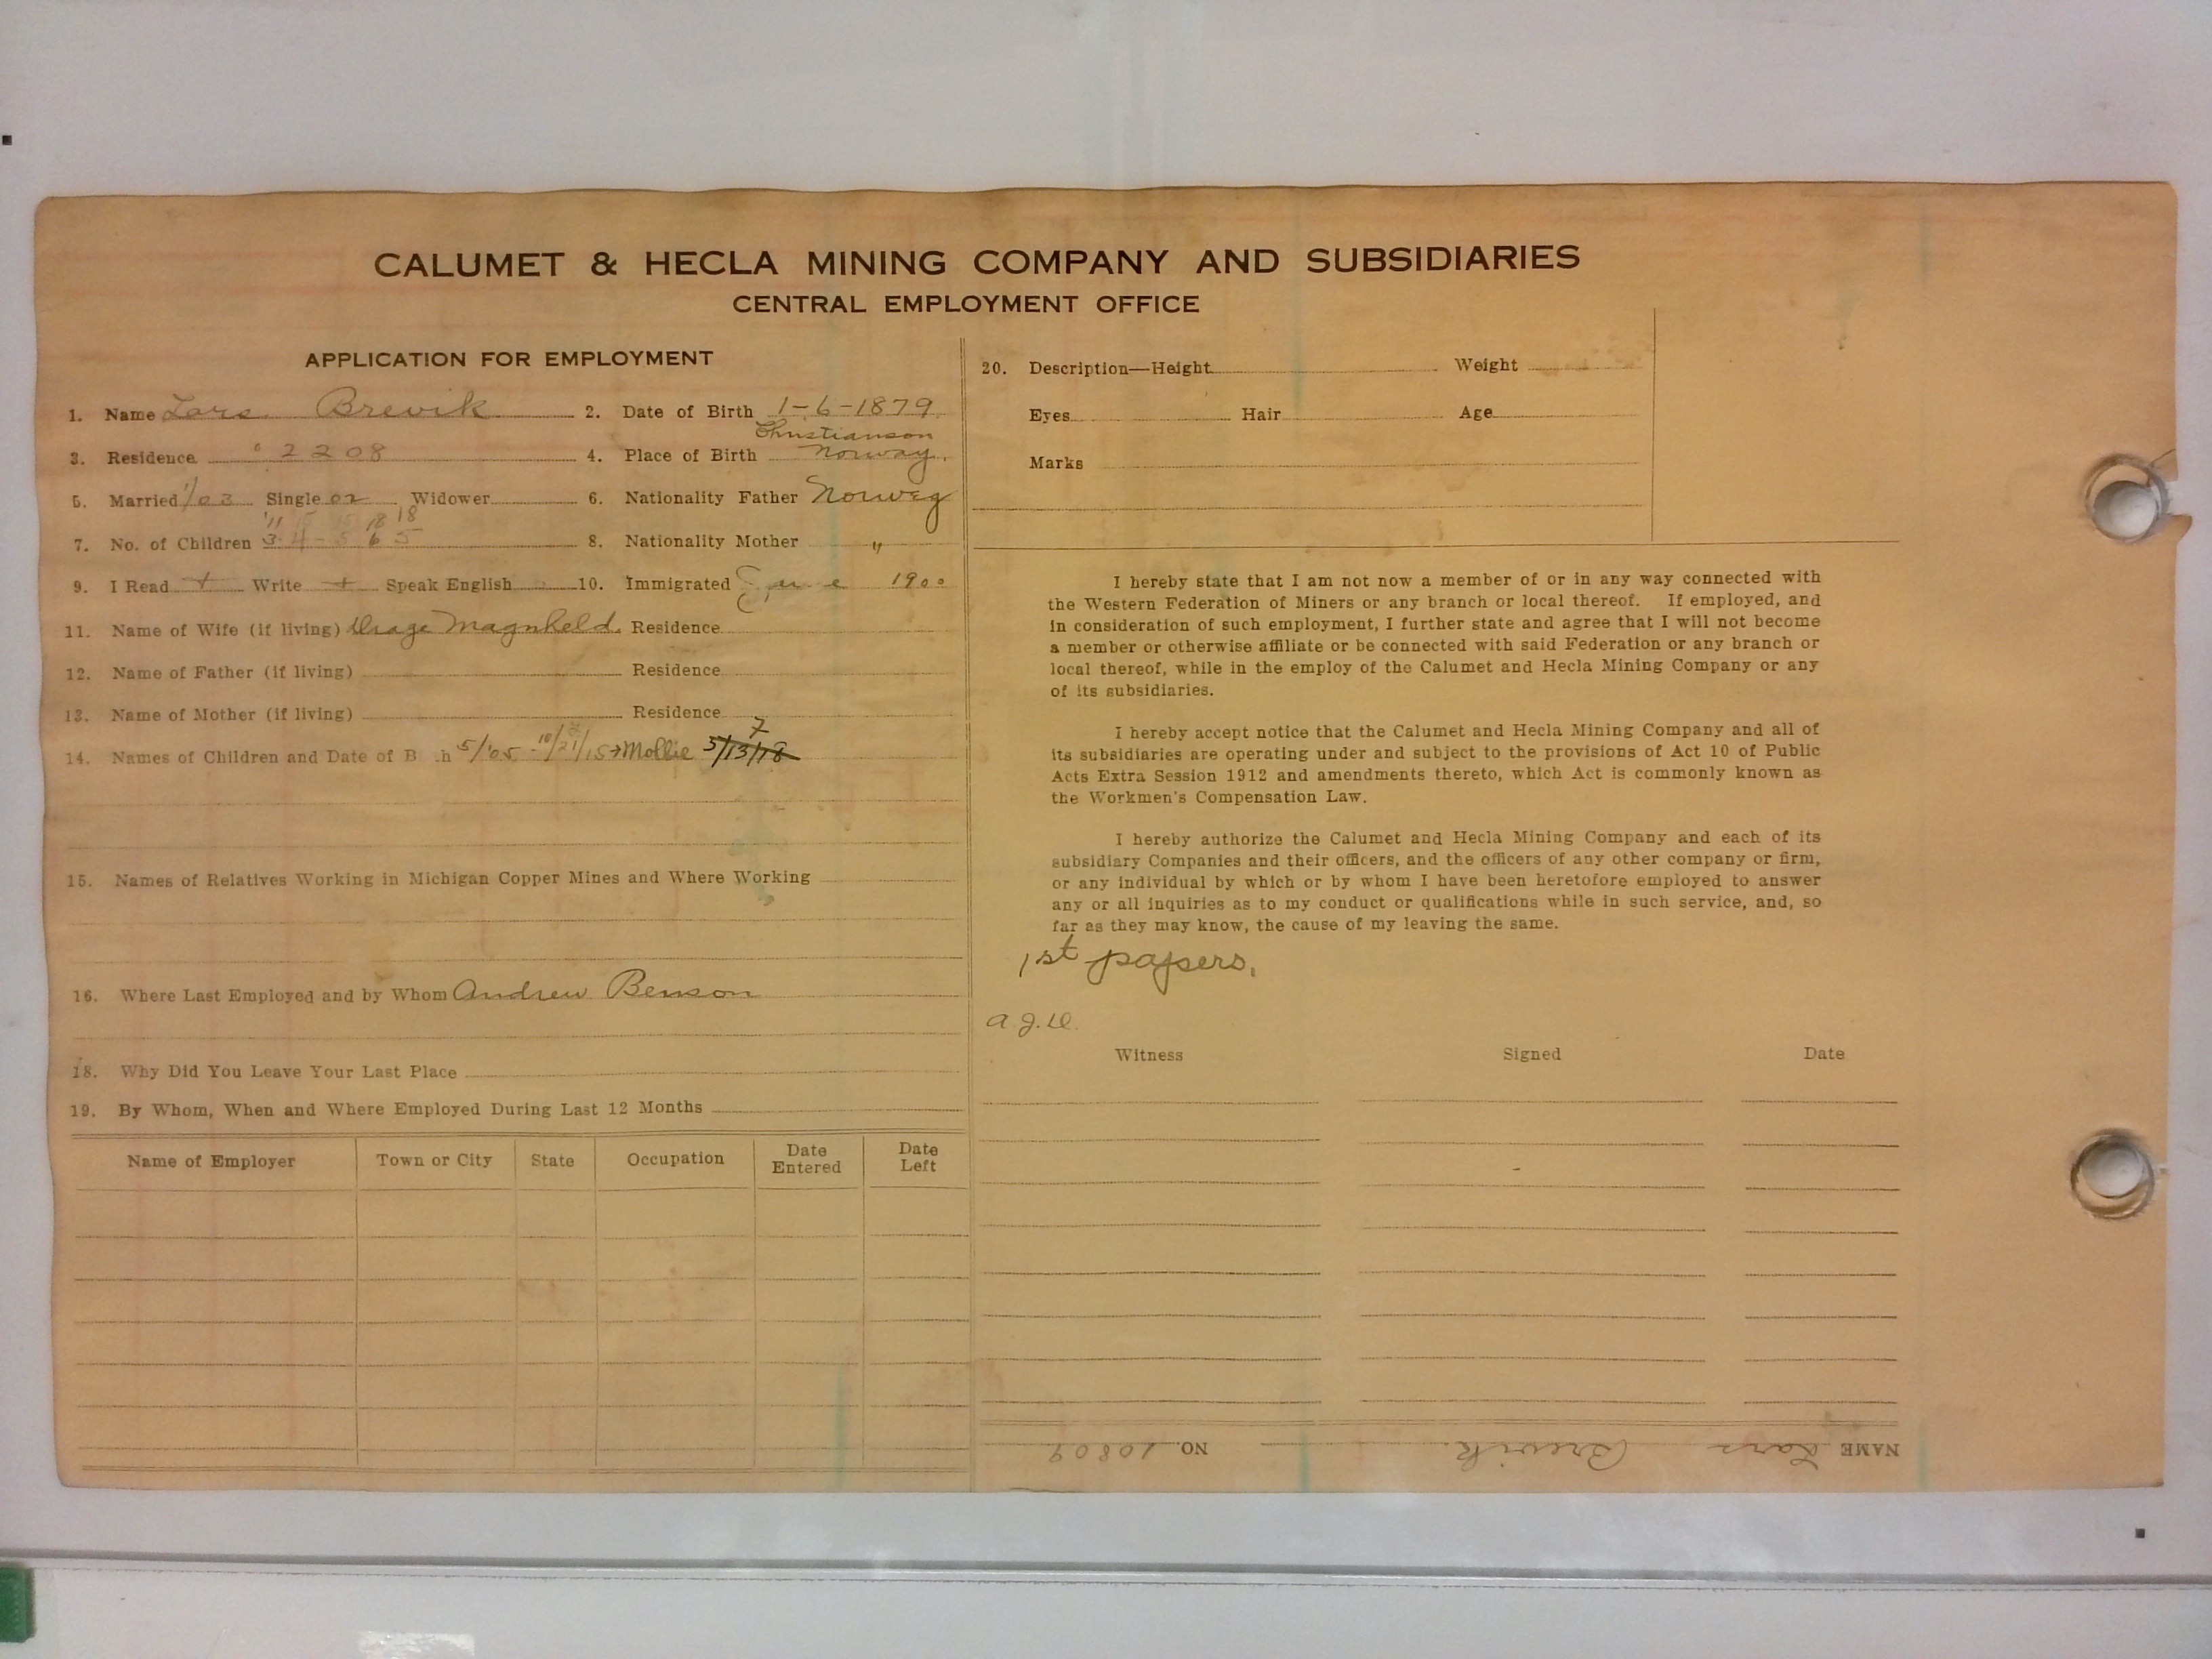 CALUMET & HECLA MINING COMPANY AND SUBSIDIARIES
CENTRAL EMPLOYMENT OFFICE
APPLICATION FOR EMPLOYMENT
1. Name Lars Brevik 2. Date of Birth 1-6-1879
Christianson
3. Residence 2208 4. Place of Birth Norway.
5. Married 1/03 Single or Widower 6. Nationality Father Norweg
'11 18 18
7. No. of Children 3 4 - 5 6 5 8. Nationality Mother "
9. I Read + Write + Speak English 10. Immigrated June 1900
11. Name of Wife (if living) Magnheld. Residence
12. Name of Father (if living) Residence
13. Name of Mother (if living) Residence
7
14. Names of Children and Date of B h 5/'05 - 10/21/15 → Mollie 5/13/18
15. Names of Relatives Working in Michigan Copper Mines and Where Working
16. Where Last Employed and by Whom Andrew Benson
18. Why Did You Leave Your Last Place
19. By Whom, When and Where Employed During Last 12 Months
Name of Employer Town or City State Occupation Date Entered Date Left
20. Description—Height Weight
Eyes Hair Age
Marks
I hereby state that I am not now a member of or in any way connected with
the Western Federation of Miners or any branch or local thereof. If employed, and
in consideration of such employment, I further state and agree that I will not become
a member or otherwise affiliate or be connected with said Federation or any branch or
local thereof, while in the employ of the Calumet and Hecla Mining Company or any
of its subsidiaries.
I hereby accept notice that the Calumet and Hecla Mining Company and all of
its subsidiaries are operating under and subject to the provisions of Act 10 of Public
Acts Extra Session 1912 and amendments thereto, which Act is commonly known as
the Workmen's Compensation Law.
I hereby authorize the Calumet and Hecla Mining Company and each of its
subsidiary Companies and their officers, and the officers of any other company or firm,
or any individual by which or by whom I have been heretofore employed to answer
any or all inquiries as to my conduct or qualifications while in such service, and, so
far as they may know, the cause of my leaving the same.
1st papers.
Witness Signed Date
NAME Lars Brevik NO. 10809